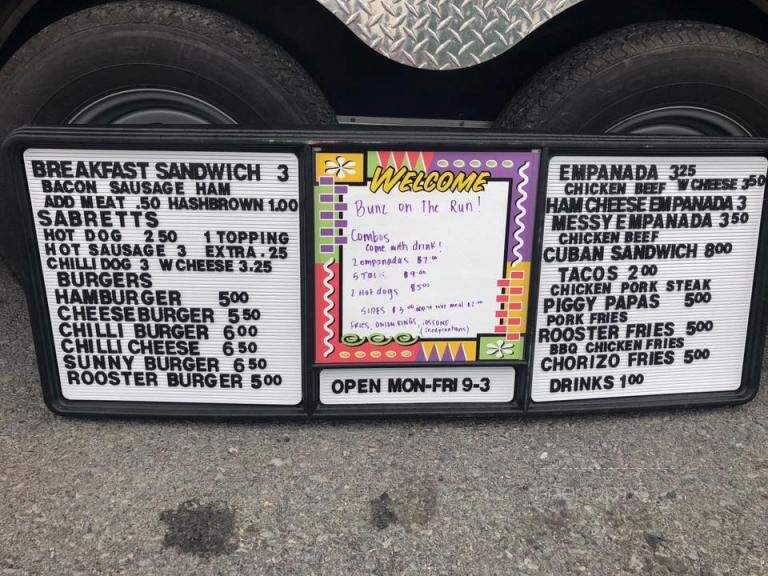 BREAKFAST SANDWICH 3
BACON SAUSAGE HAM
ADD MEAT .50 HASHBROWN 1.00
SABRETTS
HOT DOG 2 50 1 TOPPING
HOT SAUSAGE 3 EXTRA .25
CHILLI DOG 3 W CHEESE 3.25
BURGERS
HAMBURGER 500
CHEESEBURGER 5 50
CHILLI BURGER 6 00
CHILLI CHEESE 6 50
SUNNY BURGER 6 50
ROOSTER BURGER 5 00
WELCOME
Bunz on The Run!
Combos
come with drink!
2 empanadas $7.00
5 Tacos $9.00
2 Hot dogs $5.00
SIDES $3.00
Fries, ONION RINGS,
OPEN MON-FRI 9-3
EMPANADA 325
CHICKEN BEEF W CHEESE 350
HAM CHEESE EMPANADA 3
MESSY EMPANADA 3 50
CHICKEN BEEF
CUBAN SANDWICH 800
TACOS 2 00
CHICKEN PORK STEAK
PIGGY PAPAS 500
PORK FRIES
ROOSTER FRIES 500
BBQ CHICKEN FRIES
CHORIZO FRIES 500
DRINKS 1 00